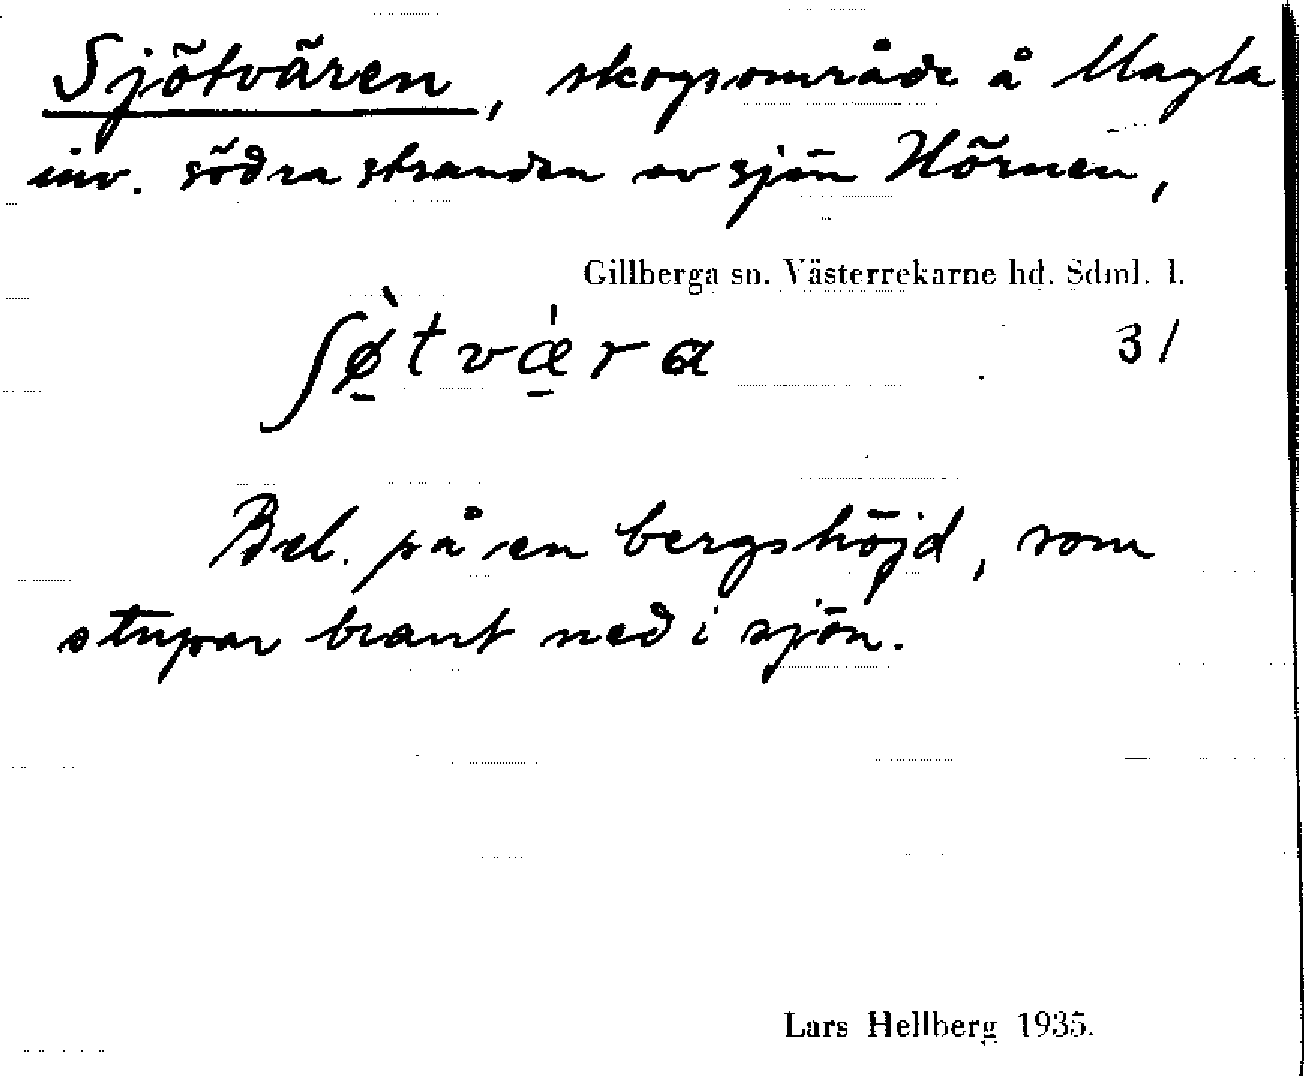 Sjötvären, skogsområde å Magla
inv. södra stranden av sjön Hörnen,
Gillberga sn. Västerrekarne hd. Sdml. l.
ʃø̠̀tvǽ̠ra 31
Bel. på en bergshöjd, som
stupar brant ned i sjön.
Lars Hellberg 1935.